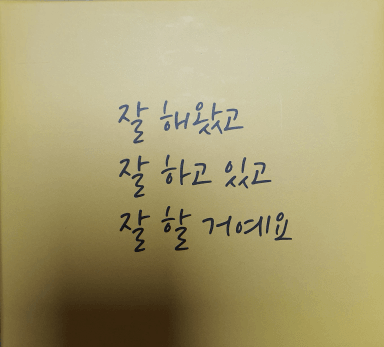 잘 해왔고
잘 하고 있고
잘 할 거예요